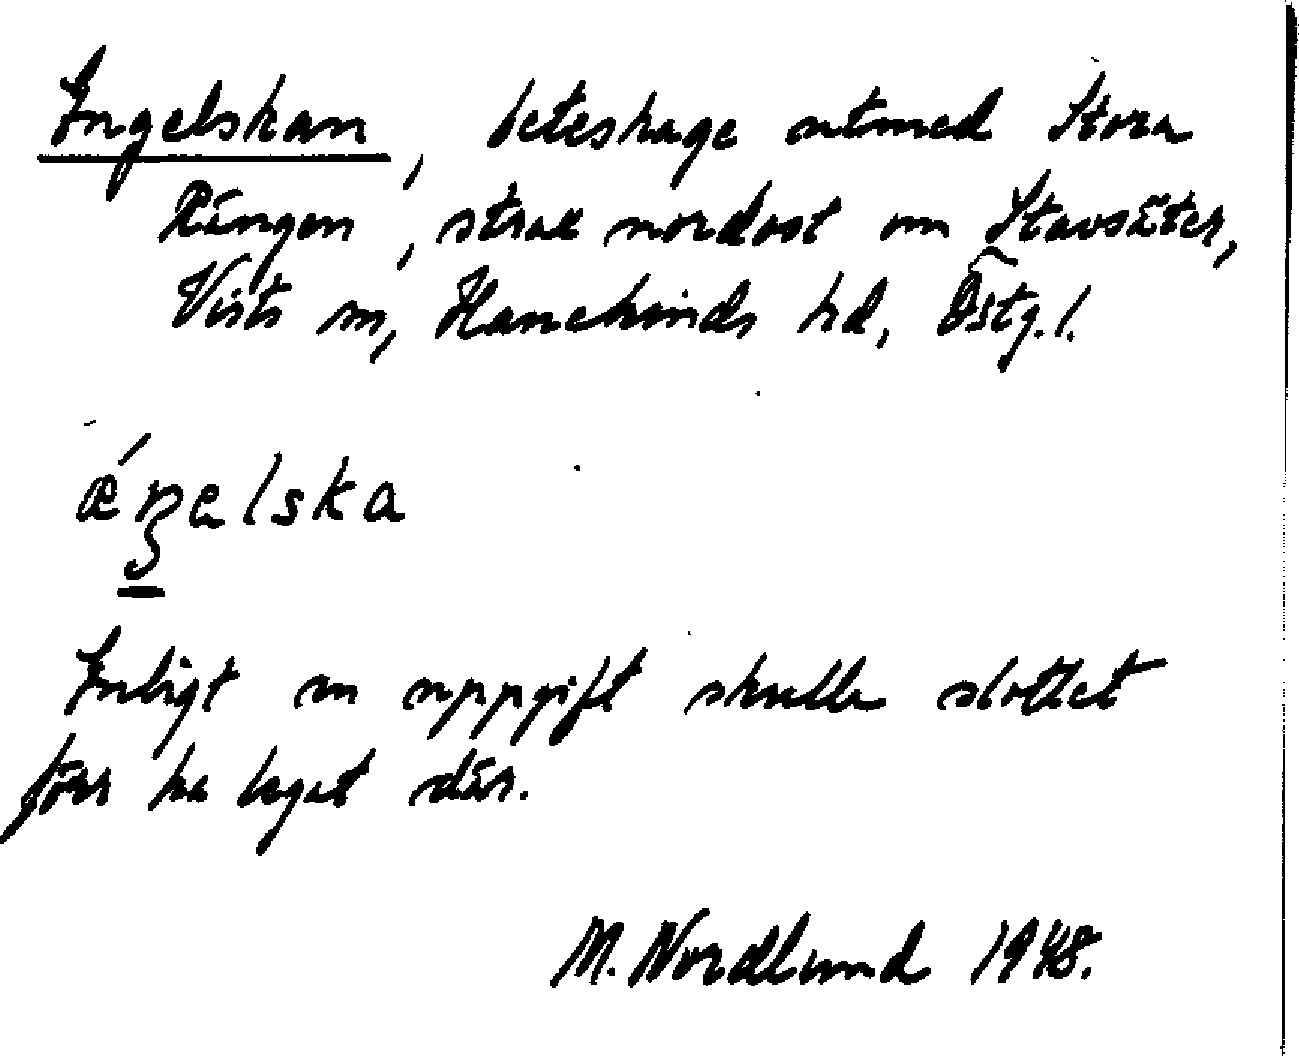 Engelskan, beteshage utmed Stora
Rängen, strax nordost om Stavsäter,
Vists sn, Hanekinds hd, Östg.l.
ǽŋelska
Enligt en uppgift skulle slottet
förr ha legat där.
M. Nordlund 1948.